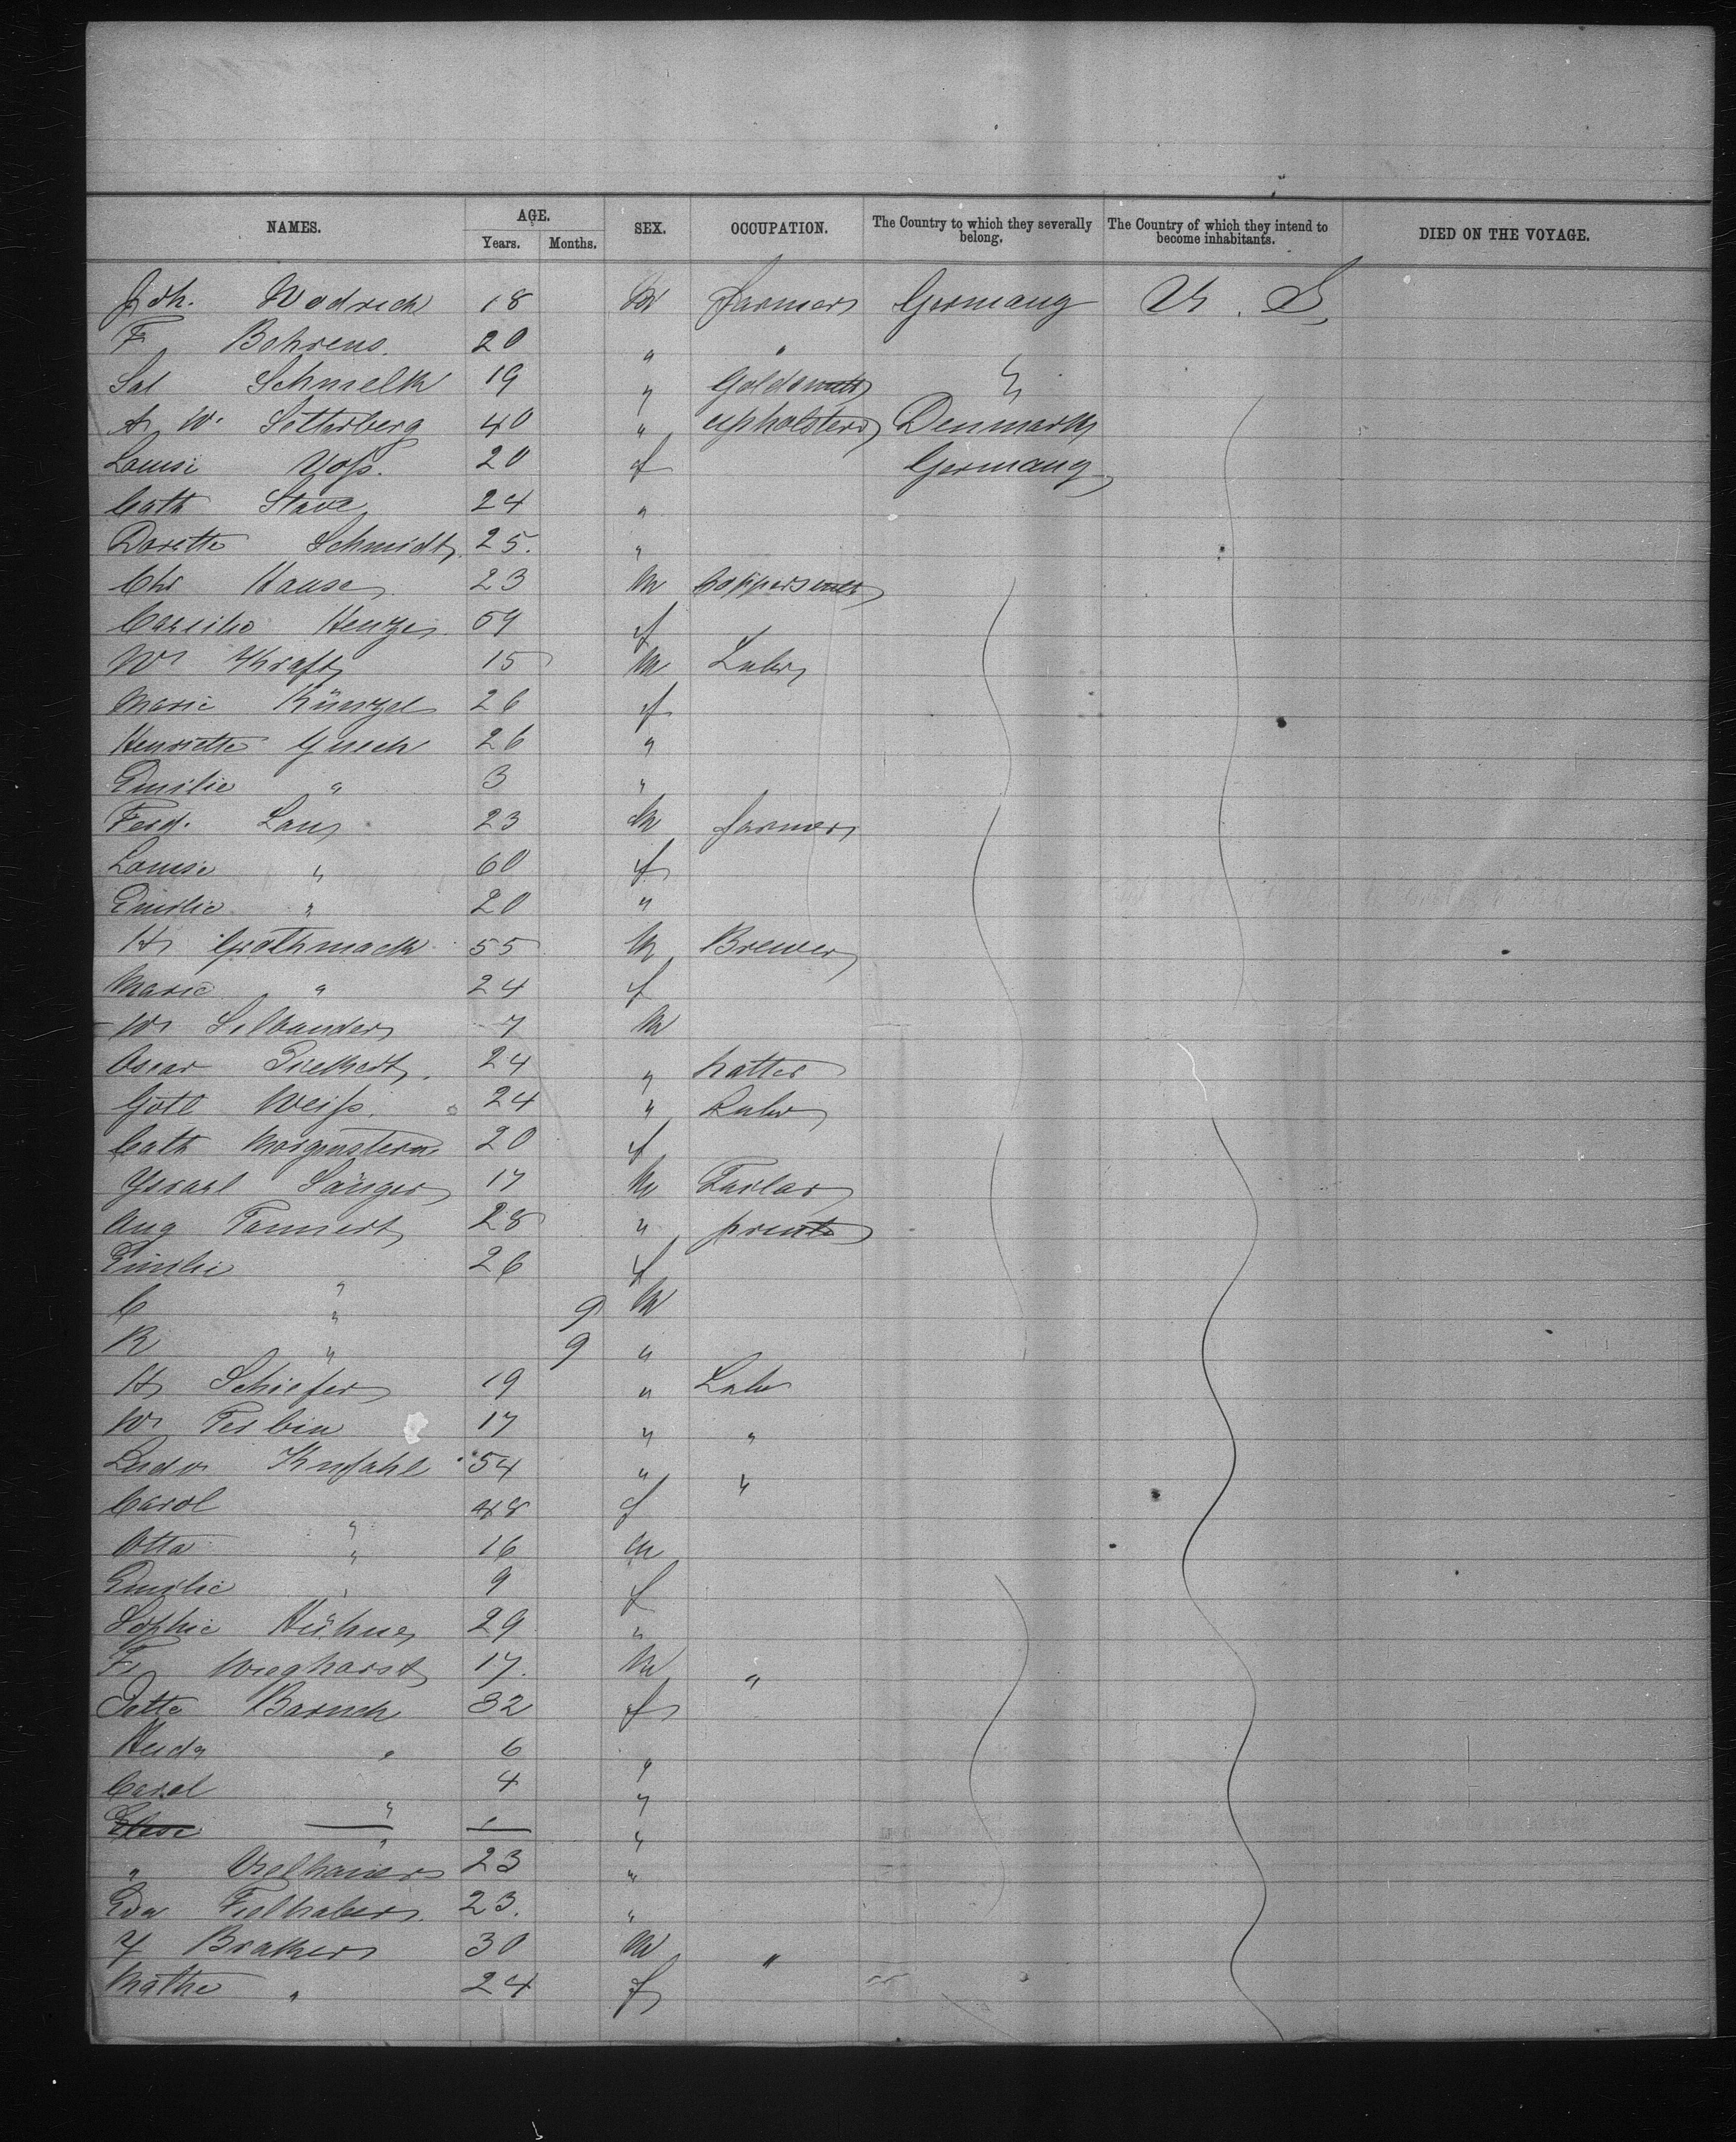 NAMES. AGE. Years. Months. SEX. OCCUPATION. The Country to which they severally belong. The Country of which they intend to become inhabitants. DIED ON THE VOYAGE.
Joh. Wodrich 18 M farmer Germany U. S.
F Bohrens. 20 " "
Sal Schmelk 19 " Goldsmith "
A W. Setterberg 40 " upholsterer Denmark
Louise Voß. 20 f Germany
Cath Stave 24 "
Dorette Schmidt 25. "
Chr Hause 23 M Coppersmith
Henze 59 f
W Kraft 15 M Labr
Marie Künzel 26 f
Henriette 26 "
Emilie " 3 "
Ferd. Lau 23 M farmer
Louise " 60 f
Emilie " 20 "
H Grothmack 55 M Brewer
Marie " 24 f
W 7 M
Oscar 24 " hatter
Gotl Weiß. 24 " Labr
Cath Morgenstern 20 f
Ysrael Sänger 17 M Tailor
Aug Tannert 28 " printer
Emilie " 26 f
C " 9 M
R " 9 "
H Schiefer 19 " Labr
W 17 " "
Ludw 54 " "
Carol " 48 f
Otto " 16 M
Emilie " 9 f
Sophie Hühne 29 "
Fr Wieghorst 17. M "
Jette Baruch 32 f
" 6 "
Carol " 4 "
" "
" 23 "
Eda Fielhaber 23. "
30 M "
Mathe " 24 f